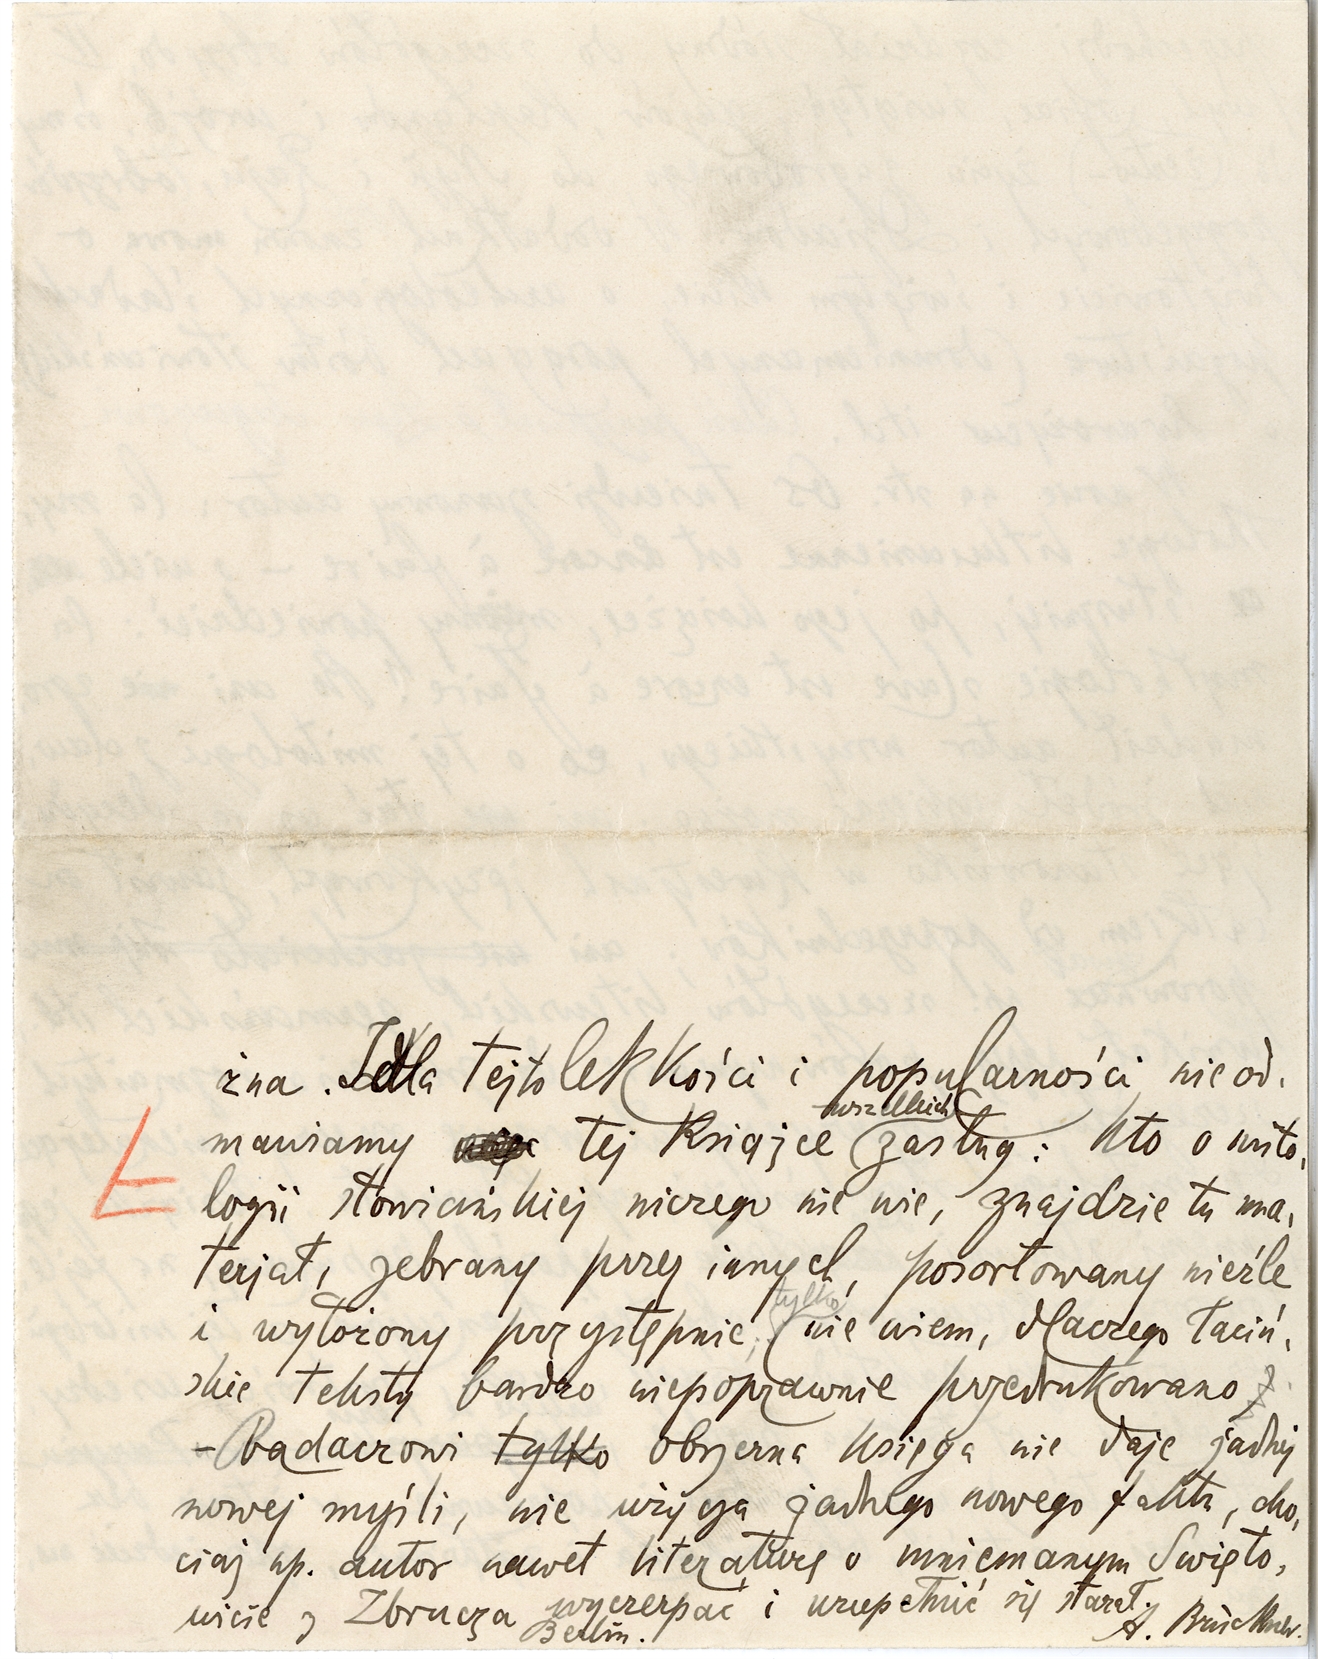 żna. Dla tej to lekkości i popularności nie od-
mawiamy tej książce wszelkich zasług: kto o mito-
logii słowiańskiej niczego nie wie, znajdzie tu ma-
terjał, zebrany przez innych, posortowany nieźle
i wyłożony przystępnie; tylko nie wiem, dlaczego łaciń-
skie teksty bardzo niepoprawnie przedrukowano.
– Badaczowi tylko obszerna księga nie daje żadnej
nowej myśli, nie użycza żadnego nowego faktu, cho-
ciaż np. autor nawet literaturę o mniemanym Święto-
wicie z Zbrucza wyczerpać i uzupełnić się starał.
Berlin. A. Brückner.